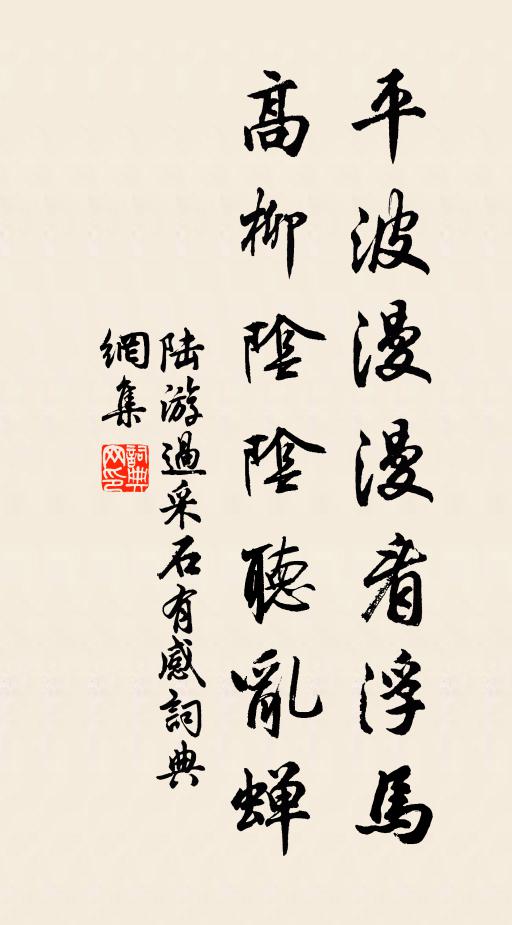 平波漫漫看浮馬
高柳陰陰聽亂蟬
陸游過采石有感詞典
網集
詞典網印